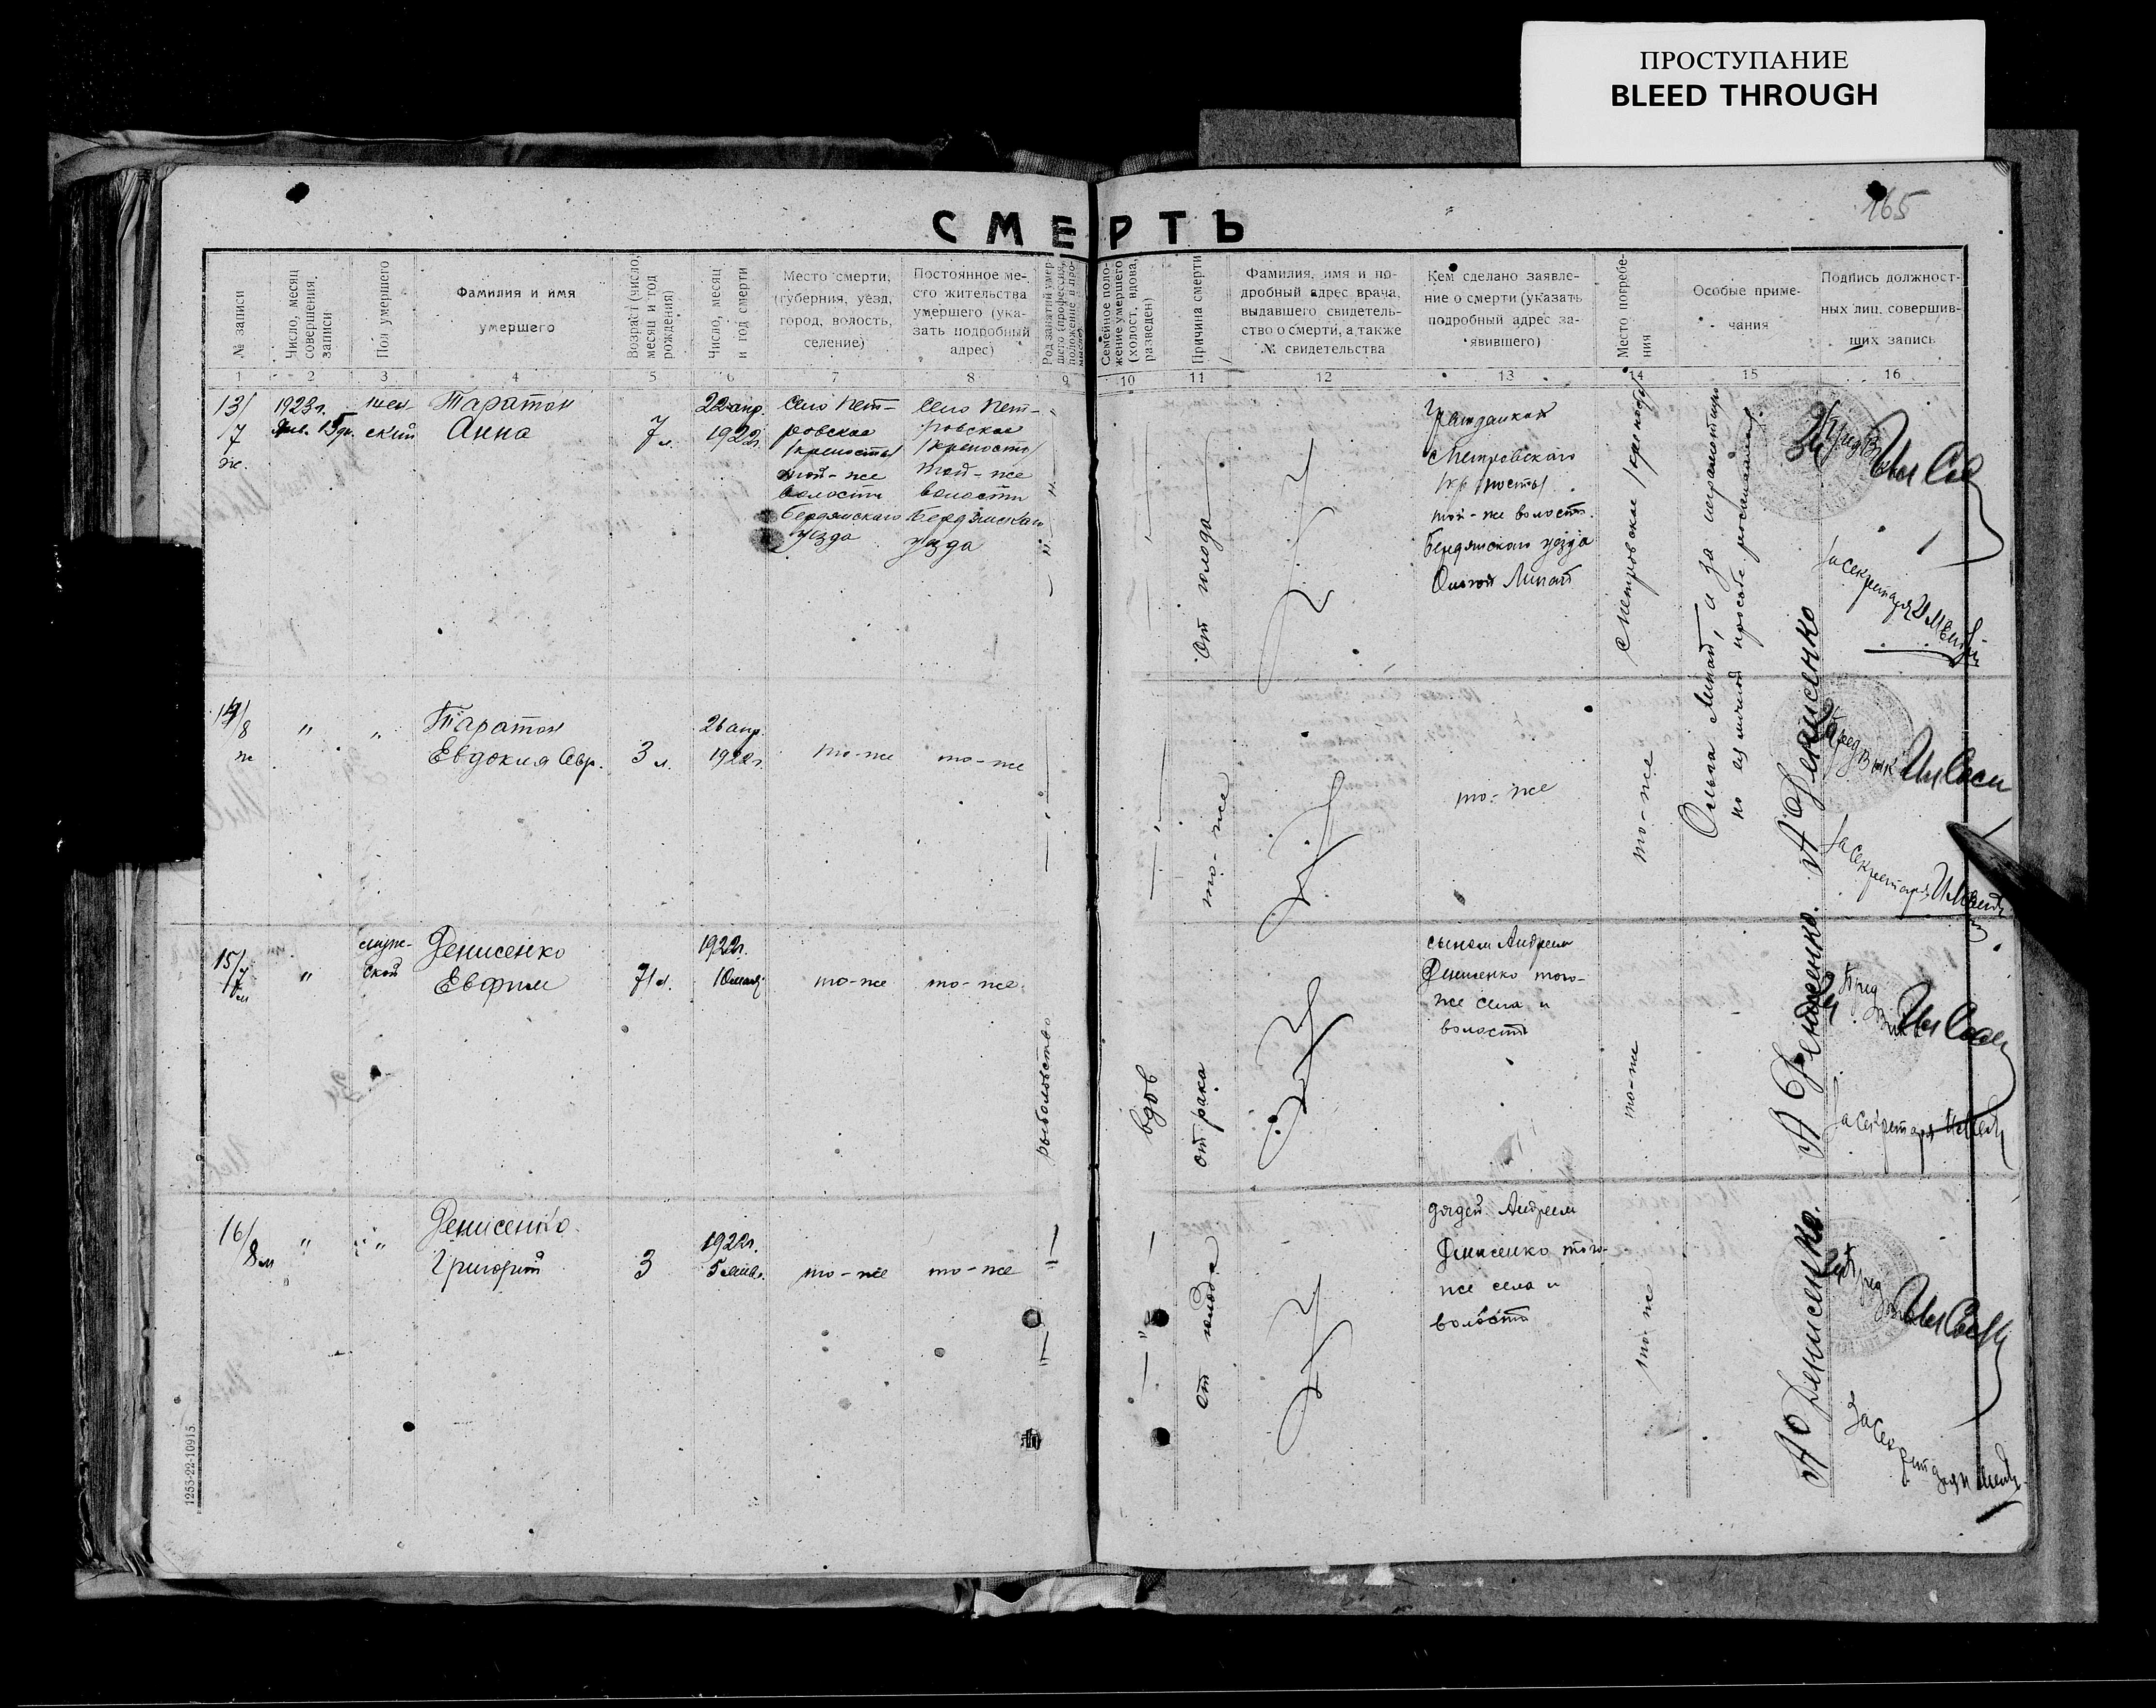 ПРОСТУПАНИЕ
BLEED THROUGH
165
СМЕРТЬ
№ записи
Число, месяц
совершения.
записи
Пол умершего
Фамилия и имя
умершего
Возраст (число,
месяц и год
рождения)
Число, месяц
и год смерти
Место смерти,
(губерния, уезд,
город, волость,
селение)
Постоянное ме-
сто жительства
умершего (ука-
зать подробный
адрес)
Род занятий умер-
шего (профессия,
положение в про-
мысле)
Семейное поло-
жение умершего
(холост, вдова,
разведен)
Причина смерти
Фамилия, имя и по-
дробный адрес врача,
выдавшего свидетель-
ство о смерти, а также
№ свидетельства
Кем сделано заявле-
ние о смерти (указать
подробный адрес за-
явившего)
Место погребе-
ния
Особые приме-
чания
Подпись должност-
ных лиц, совершив-
ших запись
1 2 3 4 5 6 7 8 9 10 11 12 13 14 15 16
13/
7
ж.
1923г.
Янв. 15дн.
жен-
ский
Таратон
Анна
7 л.
22 апр.
1922г.
Село Пет-
ровское
/крепость/
той-же
волости
Бердянскаго
уезда
Село Пет-
ровское
/крепость/
той-же
волости
Бердянскаго
уезда
От голода
Гражданкой
Петровскаго
/крепость/
той-же волости
Бердянскаго уезда
Ольгой Липай
Петровское /крепость/
Ольга Липай, а за неграмотную
по ея личной просьбе росписался
А Денисенко
За секретаря
14/
8
ж
"
"
Таратон
Евдокия
3 л.
26 апр.
1922г.
то-же
то-же
то-же
то-же
то-же
А Денисенко.
За секретаря
15/
7
м
"
муж-
ской
Денисенко
Евфим
71 л.
1922г.
то-же
то-же
рыболовство
вдов
от рака
сыном Андреем
Денисенко того-
же села и
волости
то-же
А Денисенко.
За секретаря
16/
8 м
"
"
Денисенко
Григорий
3
1922г.
то-же
то-же
От голода
дядей Андреем
Денисенко того-
же села и
волости
то-же
А Денисенко.
За секретаря
1255-22-10915